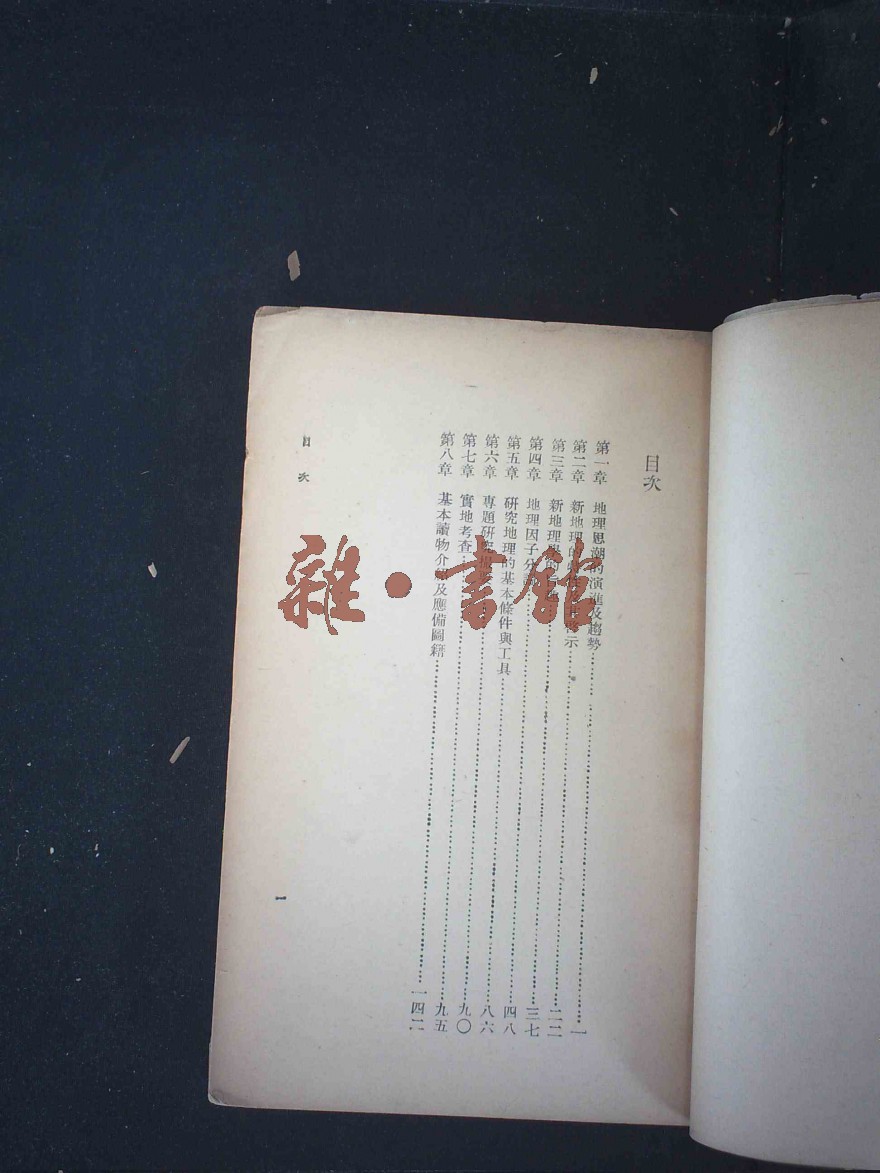 目次
第一章 地理思潮的演進及趨勢 一
第二章 新地理的 示 二二
第三章 新地理學的 三七
第四章 地理因子分 四八
第五章 研究地理的基本條件與工具 八六
第六章 專題研究 九〇
第七章 實地考查 九五
第八章 基本讀物介 及應備圖籍 一四二
目次
一
雜·書館